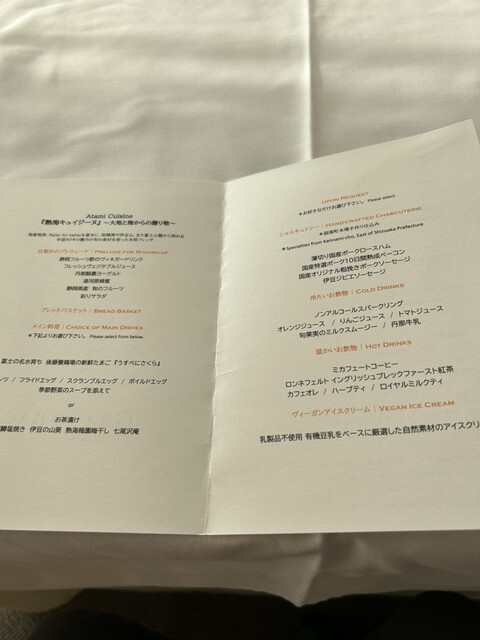 Atami Cuisine
『熱海キュイジーヌ』～大地と海からの贈り物～
目覚めのプレリュード | PRELUDE FOR WARMING UP
静岡フルーツ酢のヴィネガードリンク
フレッシュヴェジタブルジュース
丹那酪農ヨーグルト
湯河原蜂蜜
静岡県産 旬のフルーツ
彩りサラダ
ブレッドバスケット | BREAD BASKET
メイン料理 | CHOICE OF MAIN DISHES
＊下記よりお選び下さい。 Please select from below.
富士の名水育ち 後藤養鶏場の新鮮たまご『うすべにさくら』
/ フライドエッグ / スクランブルエッグ / ボイルドエッグ
季節野菜のスープを添えて
or
お茶漬け
塩焼き 伊豆の山葵 熱海梅園梅干し 七尾沢庵
UPON REQUEST
＊お好きなだけお選び下さい。 Please select.
シャルキュトリー | HANDCRAFTED CHARCUTERIE
＊函南町本場手作り仕込み
＊Specialties from Kannami-cho, East of Shizuoka Prefecture
薄切り国産ポークロースハム
国産特選ポーク10日間熟成ベーコン
国産オリジナル粗挽きポークソーセージ
伊豆ジビエソーセージ
冷たいお飲物 | COLD DRINKS
ノンアルコールスパークリング
オレンジジュース / りんごジュース / トマトジュース
旬果実のミルクスムージー / 丹那牛乳
温かいお飲物 | HOT DRINKS
ミカフェートコーヒー
ロンネフェルト イングリッシュブレックファースト紅茶
カフェオレ / ハーブティ / ロイヤルミルクティ
ヴィーガンアイスクリーム | VEGAN ICE CREAM
乳製品不使用 有機豆乳をベースに厳選した自然素材のアイスクリ